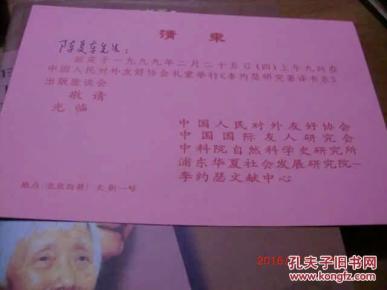 请柬
陈先生:
兹定于一九九九年二月二十五日(四)上午九时在
中国人民对外友好协会礼堂举行《李约瑟研究著译书系》
出版座谈会
敬请
光临
中国人民对外友好协会
中国国际友人研究会
中科院自然科学史研究所
浦东华夏社会发展研究院—
李约瑟文献中心
地点:北京台基厂大街一号
2016
孔夫子旧书网